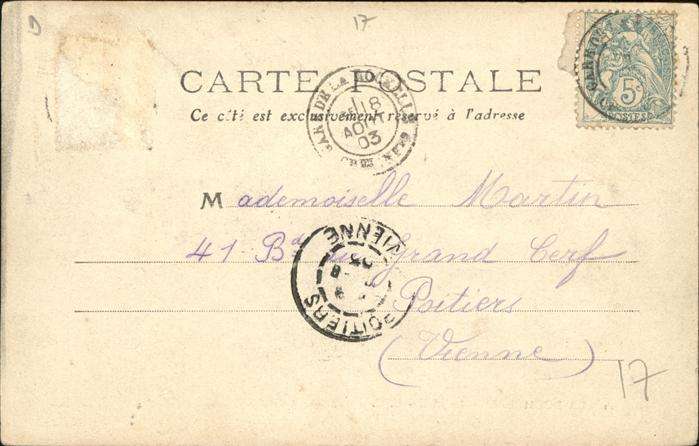 D
17
CARTE POSTALE
Ce côté est exclusivement réservé à l'adresse
GARE DE LA ROCHELLE
18
AOUT
03
5c
POSTES
Mademoiselle Martin
41 Bd du Grand Cerf
Poitiers
(Vienne)
POITIERS
VIENNE
03
17